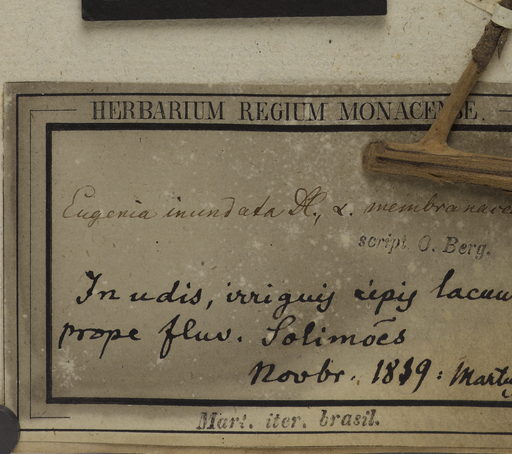 HERBARIUM REGIUM MONACENSE.
Eugenia inundata DC., α. membranacea
script. O. Berg.
In udis, irriguis ripis lacuu
prope fluv. Solimoēs
Novbr. 1819: Martius
Mart. iter. brasil.